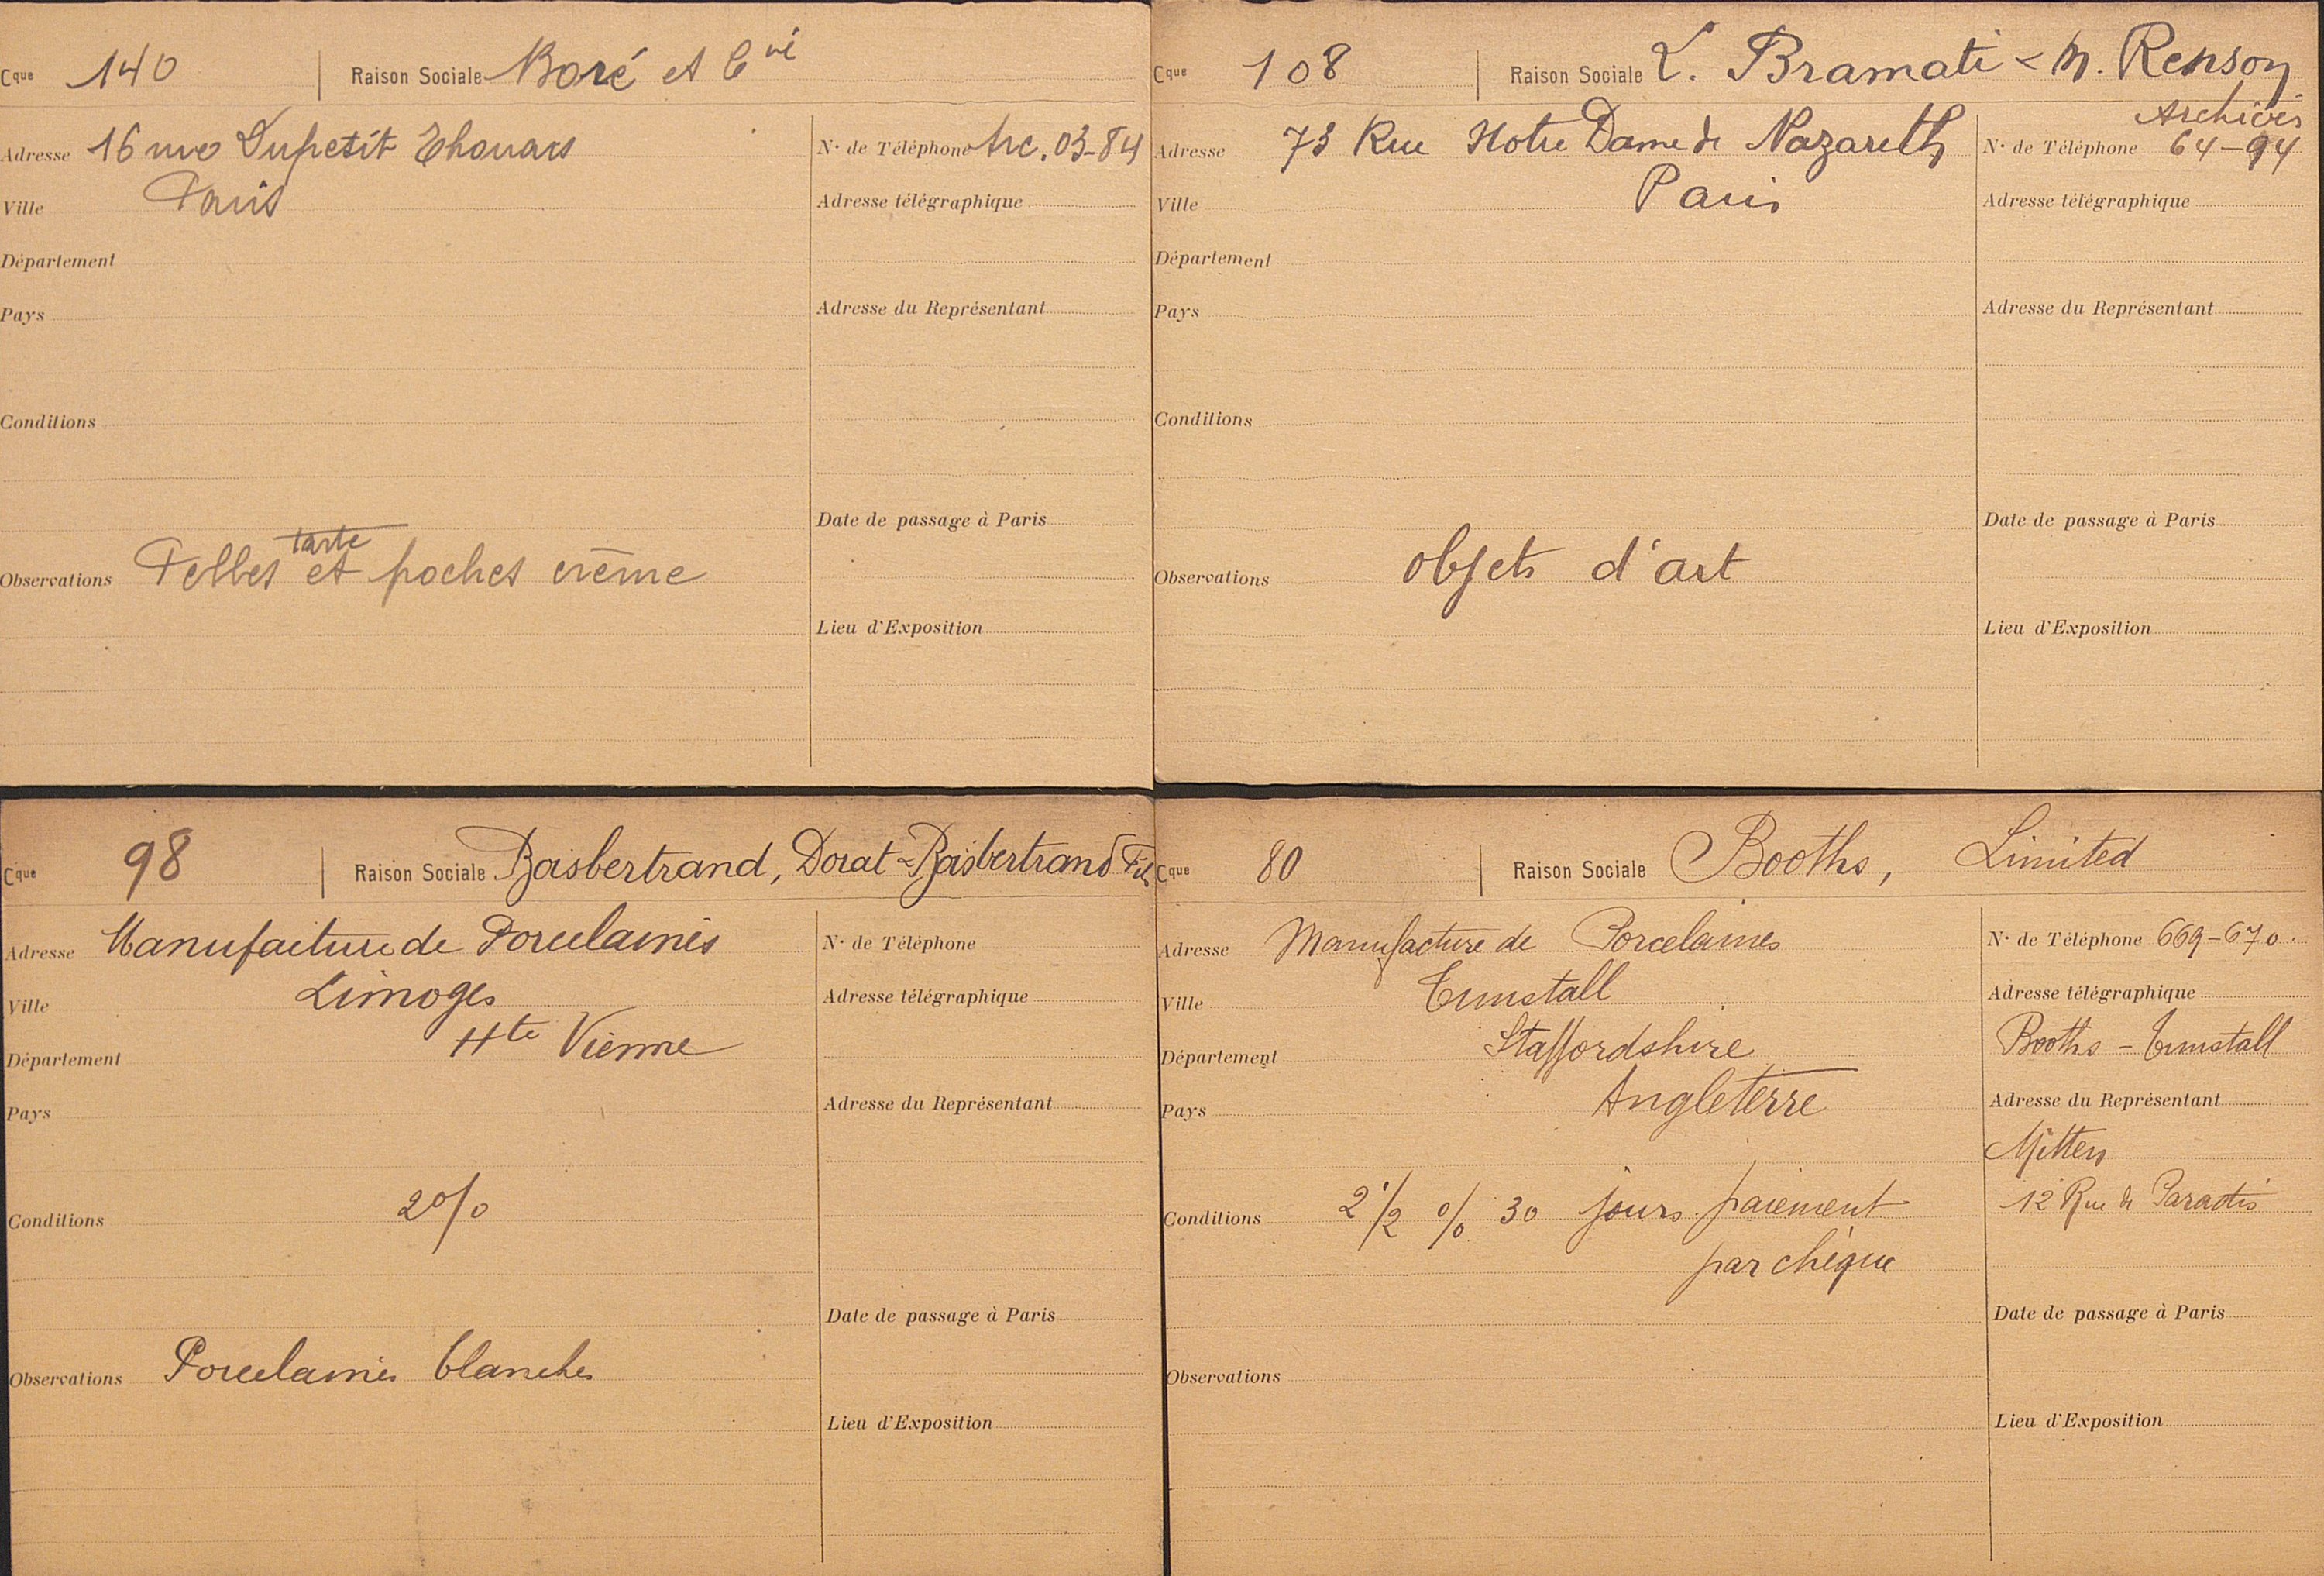 Cque 140 Raison Sociale Boré et Cie
Adresse 16 rue Dupetit Thouars N° de Téléphone Arc. 03-84
Ville Paris Adresse télégraphique
Département
Pays Adresse du Représentant
Conditions
Date de passage à Paris
tarte
Observations Pelles et poches crème
Lieu d'Exposition
Cque 108 Raison Sociale L. Bramati - M. Renson
Archives
Adresse 73 Rue Notre Dame de Nazareth N° de Téléphone 64-94
Ville Paris Adresse télégraphique
Département
Pays Adresse du Représentant
Conditions
Date de passage à Paris
Observations objets d'art
Lieu d'Exposition
Cque 98 Raison Sociale Boisbertrand, Dorat - Boisbertrand Fils
Adresse Manufacture de Porcelaines N° de Téléphone
Ville Limoges Adresse télégraphique
Département Hte Vienne
Pays Adresse du Représentant
Conditions 2%
Date de passage à Paris
Observations Porcelaines blanches
Lieu d'Exposition
Cque 80 Raison Sociale Booths, Limited
Adresse Manufacture de Porcelaines N° de Téléphone 669-670.
Ville Tunstall Adresse télégraphique
Département Staffordshire Booths - Tunstall
Pays Angleterre Adresse du Représentant
Mitten
Conditions 2 1/2 % 30 jours paiement 12 Rue de Paradis
par chèque
Date de passage à Paris
Observations
Lieu d'Exposition